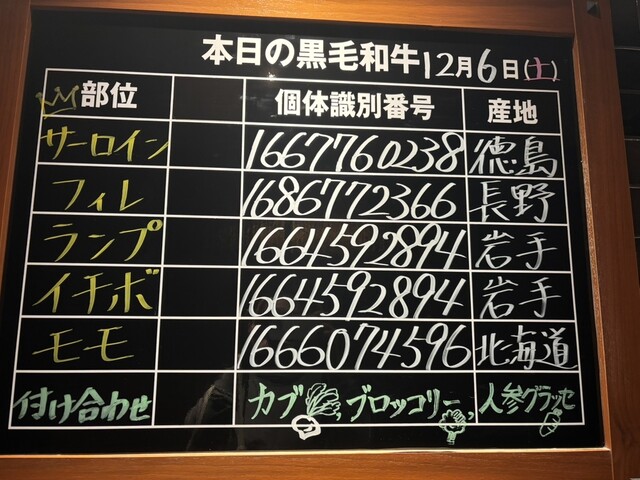 本日の黒毛和牛 12月6日(土)
部位 個体識別番号 産地
サーロイン 1667760238 徳島
フィレ 1686772366 長野
ランプ 1664592894 岩手
イチボ 1664592894 岩手
モモ 1666074596 北海道
付け合わせ カブ、ブロッコリー、人参グラッセ